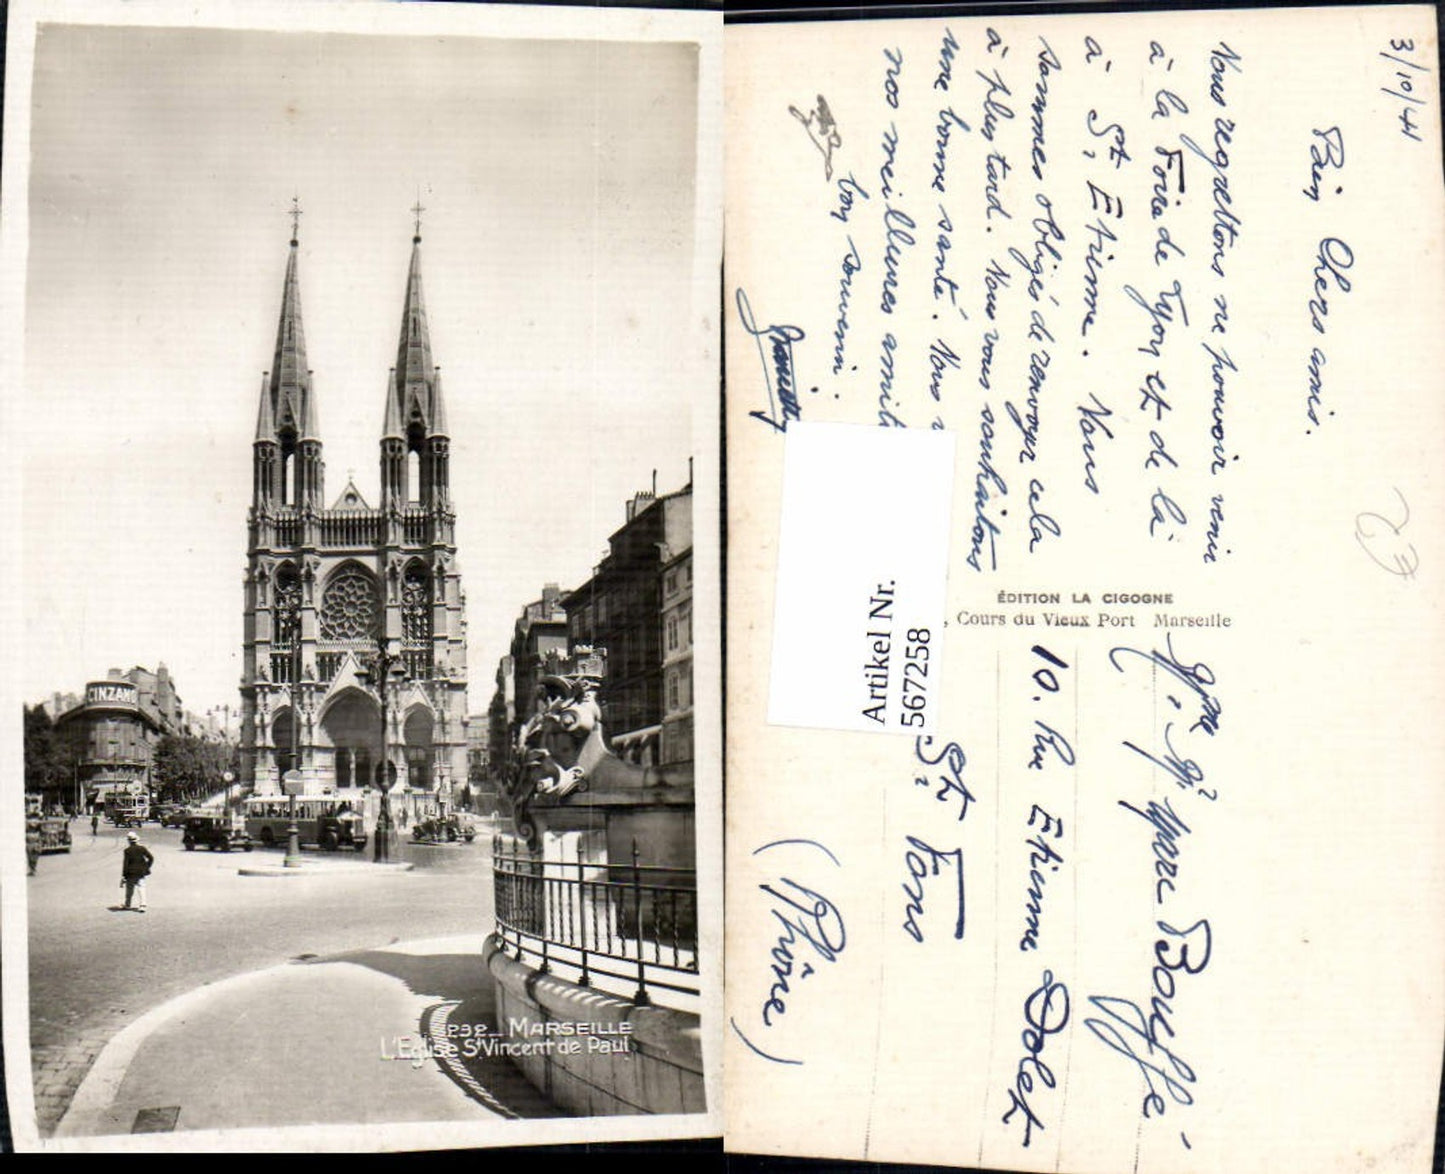 CINZANO
232_ MARSEILLE
L'Eglise St Vincent de Paul
3/10/41
Bien Chers amis.
Nous regrettons ne pouvoir venir
à la Foire de Lyon et de là
à St Etienne. Nous
sommes obligés de renvoyer cela
à plus tard. Nous vous souhaitons
une bonne santé. Nous
nos meilleures
bon souvenir.
ÉDITION LA CIGOGNE
, Cours du Vieux Port Marseille
Artikel Nr.
567258
Bouffé
10. Rue Etienne Dolet
St Fons
(Rhône)